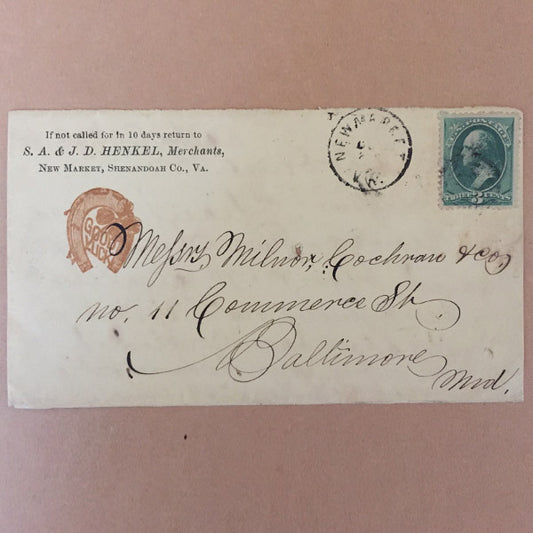 If not called for in 10 days return to
S. A. & J. D. HENKEL, Merchants,
NEW MARKET, SHENANDOAH CO., VA.
NEW MARKET
VA.
U.S. POSTAGE
THREE 3 CENTS
GOOD LUCK
Messrs Milnor, Cochran & Co,
No. 11 Commerce St.
Baltimore
Md.